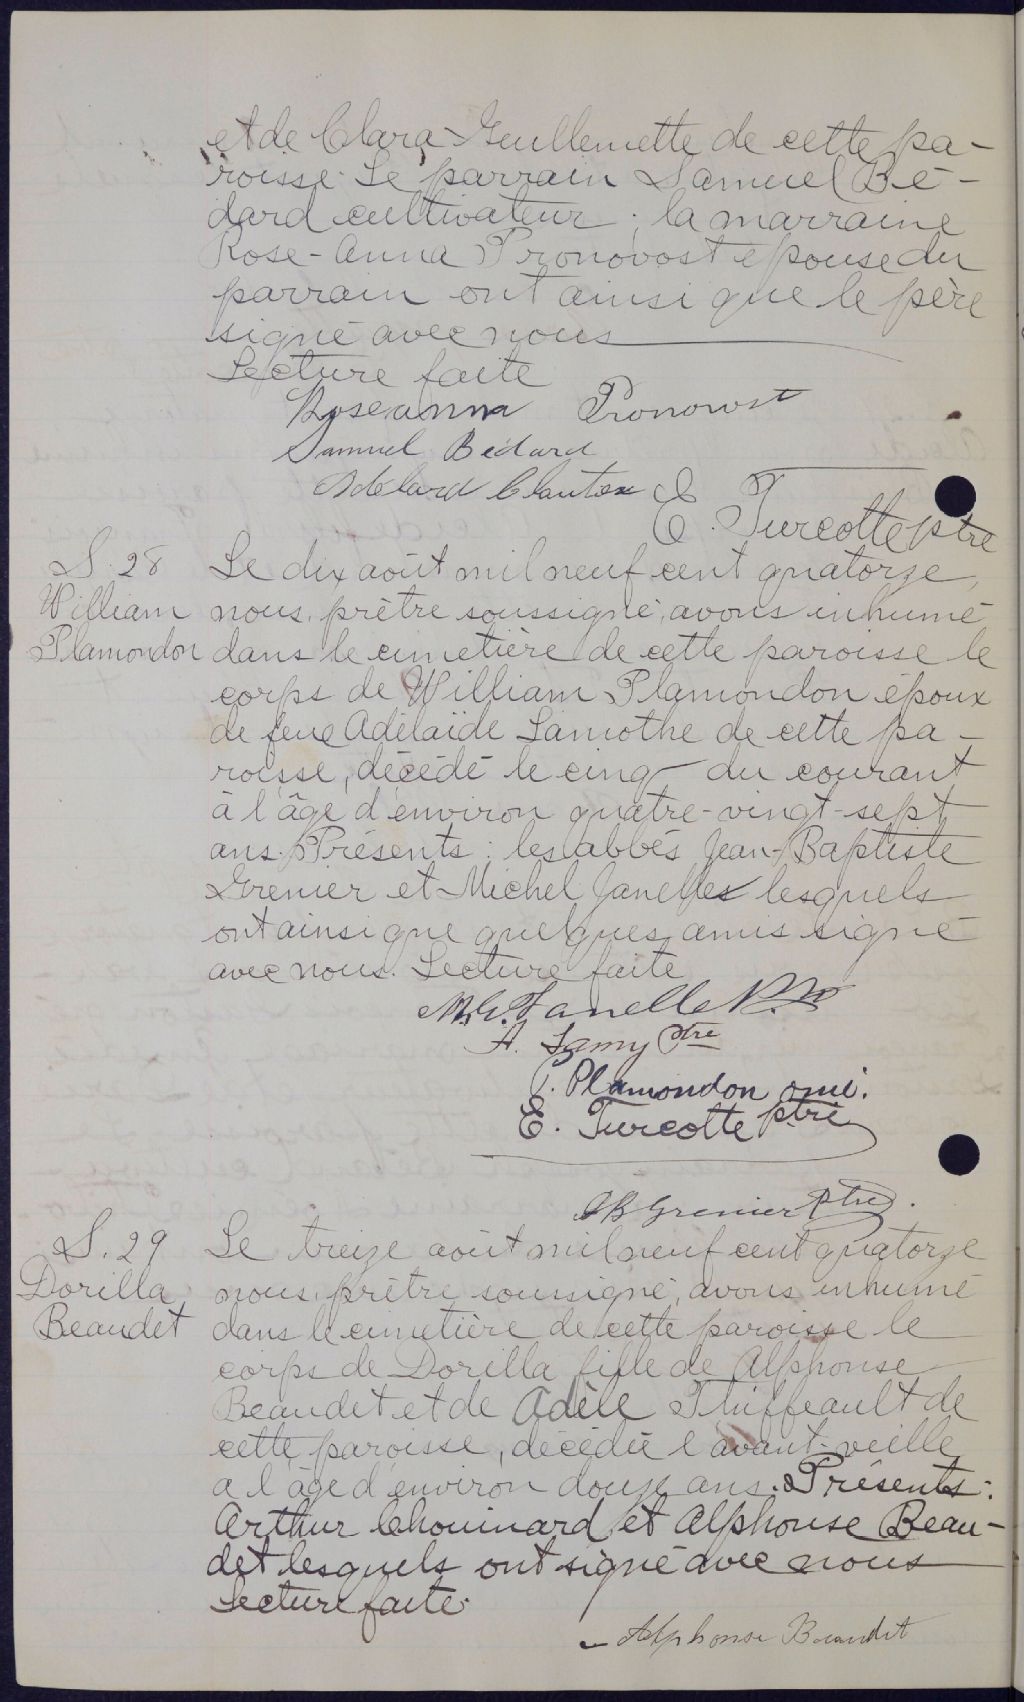 et de Clara Guillemette de cette pa-
roisse. Le parrain Samuel Bé-
dard cultivateur; la marraine
Rose-Anna Pronovost épouse du
parrain ont ainsi que le père
signé avec nous
Lecture faite
Roseanna Pronovost
Samuel Bédard
Adélard
E. Turcotte ptre
S. 28
William
Plamondon
Le dix août mil neuf cent quatorze,
nous, prêtre soussigné, avons inhumé
dans le cimetière de cette paroisse le
corps de William Plamondon époux
de feue Adélaïde Lamothe de cette pa-
roisse, décédé le cinq du courant
à l'âge d'environ quatre-vingt-sept
ans. Présents: les abbés Jean-Baptiste
Grenier et Michel Janelles lesquels
ont ainsi que quelques amis signé
avec nous. Lecture faite
M. G. Janelle
A. Lamy Ptre
P. Plamondon omi.
E. Turcotte ptre
JB Grenier Ptre.
S. 29
Dorilla
Beaudet
Le treize août mil neuf cent quatorze
nous, prêtre soussigné, avons inhumé
dans le cimetière de cette paroisse le
corps de Dorilla fille de Alphonse
Beaudet et de Adèle Thiffeault de
cette paroisse, décédée l'avant-veille
a l'âge d'environ douze ans. Présents:
Arthur Chouinard et Alphonse Beau-
det lesquels ont signé avec nous
Lecture faite.
Alphonse Beaudet